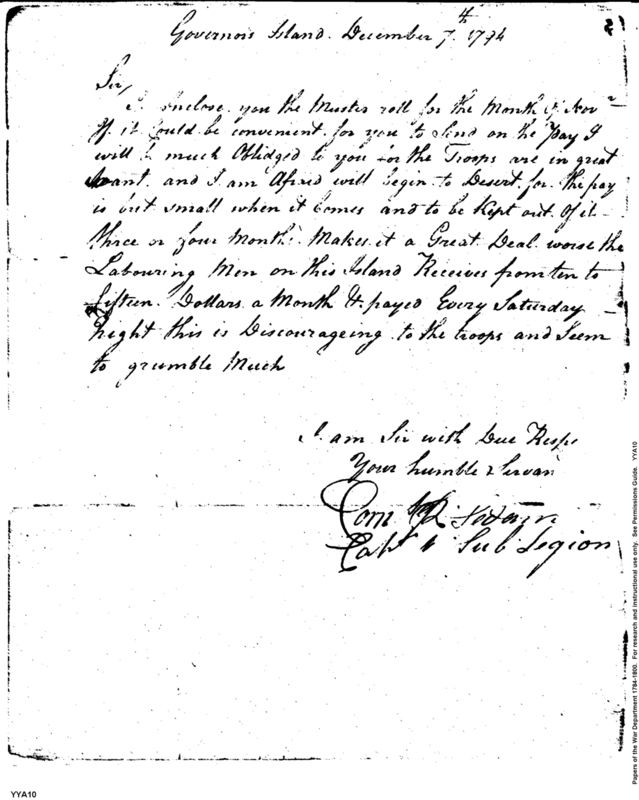 Governors Island. December 7th 1794
Sir,
I enclose you the Muster roll for the Month of Novr
If it Could be convenient for you to Send on the Pay I
will be much Oblidged to you for the Troops are in great
Want and I am Afraid will begin to Desert for the pay
is but small when it Comes and to be Kept out Of it
three or four Months Makes it a Great Deal worse the
Labouring Men on this Island Receives from ten to
fifteen Dollars a Month & payed Every Saturday
Night this is Discourageing to the troops and Seem
to grumble Much
I am Sir with Due Respe
Your humble Servan
Corn R
Capt Sub Legion
Papers of the War Department 1784-1800. For research and instructional use only. See Permissions Guide. YYA10
YYA10